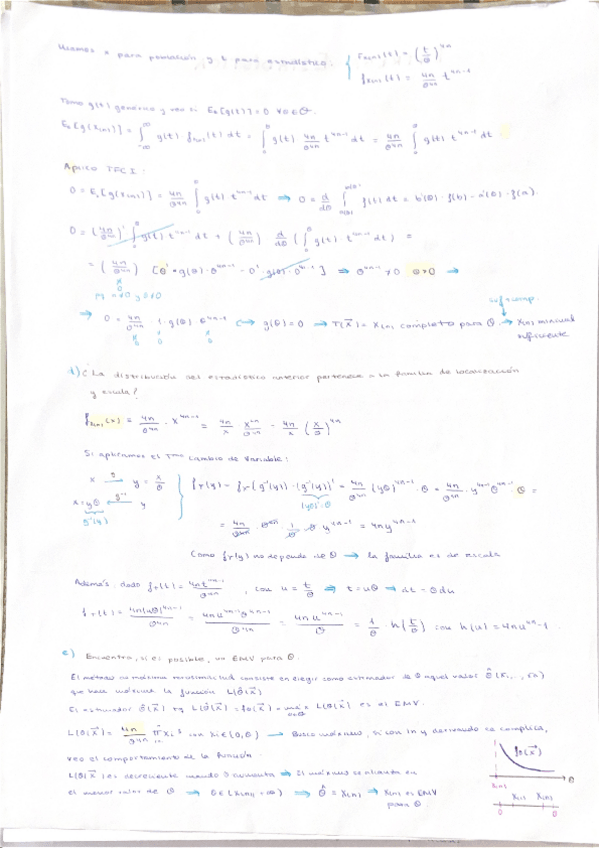 Usamos x para población y t para estadístico: { F_{X(n)}(t) = (t/θ)^{4n}
f_{X(n)}(t) = 4n/θ^{4n} t^{4n-1}
Tomo g(t) genérica y veo si E_θ[g(t)] = 0 ∀θ∈Θ.
E_θ[g(X_{(n)})] = ∫_{-∞}^{∞} g(t) f_{X(n)}(t) dt = ∫_0^θ g(t) 4n/θ^{4n} t^{4n-1} dt = 4n/θ^{4n} ∫_0^θ g(t) t^{4n-1} dt
Aplico TFC I:
0 = E_θ[g(X_{(n)})] = 4n/θ^{4n} ∫_0^θ g(t) t^{4n-1} dt ⇒ 0 = d/dθ ∫_{a(θ)}^{b(θ)} f(t) dt = b'(θ) · f(b) - a'(θ) · f(a).
0 = (4n/θ^{4n})' ∫_0^θ g(t) t^{4n-1} dt + (4n/θ^{4n}) d/dθ (∫_0^θ g(t) · t^{4n-1} dt) =
= (4n/θ^{4n}) [θ' · g(θ) · θ^{4n-1} - 0' · g(0) · 0^{4n-1}] ⇒ θ^{4n-1} > 0 θ>0 →
⇒ 0 = 4n/θ^{4n} 1 · g(θ) θ^{4n-1} ⇔ g(θ) = 0 → T(X⃗) = X_{(n)} completo para θ → X_{(n)} minimal
suficiente
d) ¿La distribución del estadístico anterior pertenece a la familia de localización
y escala?
f_{X(n)}(x) = 4n/θ^{4n} · x^{4n-1} = 4n/x · x^{4n}/θ^{4n} = 4n/x (x/θ)^{4n}
Si aplicamos el Tmo Cambio de Variable:
x →^g y = x/θ { f_Y(y) = f_X(g^{-1}(y)) · (g^{-1}(y))' = 4n/θ^{4n} (yθ)^{4n-1} · θ = 4n/θ^{4n} · y^{4n-1} θ^{4n-1} · θ =
x = yθ ←^{g^{-1}} y
g^{-1}(y) (yθ)' = θ
= 4n/θ^{4n} · θ^{4n} · 1/θ · θ y^{4n-1} = 4n y^{4n-1}
Como f_Y(y) no depende de θ → la familia es de escala
Además, dado f_T(t) = 4n t^{4n-1}/θ^{4n}, con u = t/θ ⇒ t = uθ ⇒ dt = θ du
f_T(t) = 4n(uθ)^{4n-1}/θ^{4n} = 4n u^{4n-1} θ^{4n-1}/θ^{4n} = 4n u^{4n-1}/θ = 1/θ · h(t/θ) con h(u) = 4n u^{4n-1}.
e) Encuentra, si es posible, un EMV para θ.
El método de máxima verosimilitud consiste en elegir como estimador de θ aquel valor θ̂(X_1, ..., X_n)
que hace máxima la función L(θ|X⃗)
El estimador θ̂(X⃗) tq L(θ̂|X⃗) = f_θ(X⃗) = max_{θ∈Θ} L(θ|X⃗) es el EMV.
L(θ|X⃗) = 4^n/θ^{4n} ∏ X_i^3 con X_i∈(0,θ) → Busco máximos, si con ln y derivando se complica,
veo el comportamiento de la función.
L(θ|X⃗) es decreciente cuando θ aumenta ⇒ El máximo se alcanza en
el menor valor de θ ⇒ θ∈(X_{(n)}, +∞) ⇒ θ̂ = X_{(n)} → X_{(n)} es EMV
para θ
f_θ(X⃗)
θ
X_{(n)}
X_{(1)} X_{(n)}
0 θ